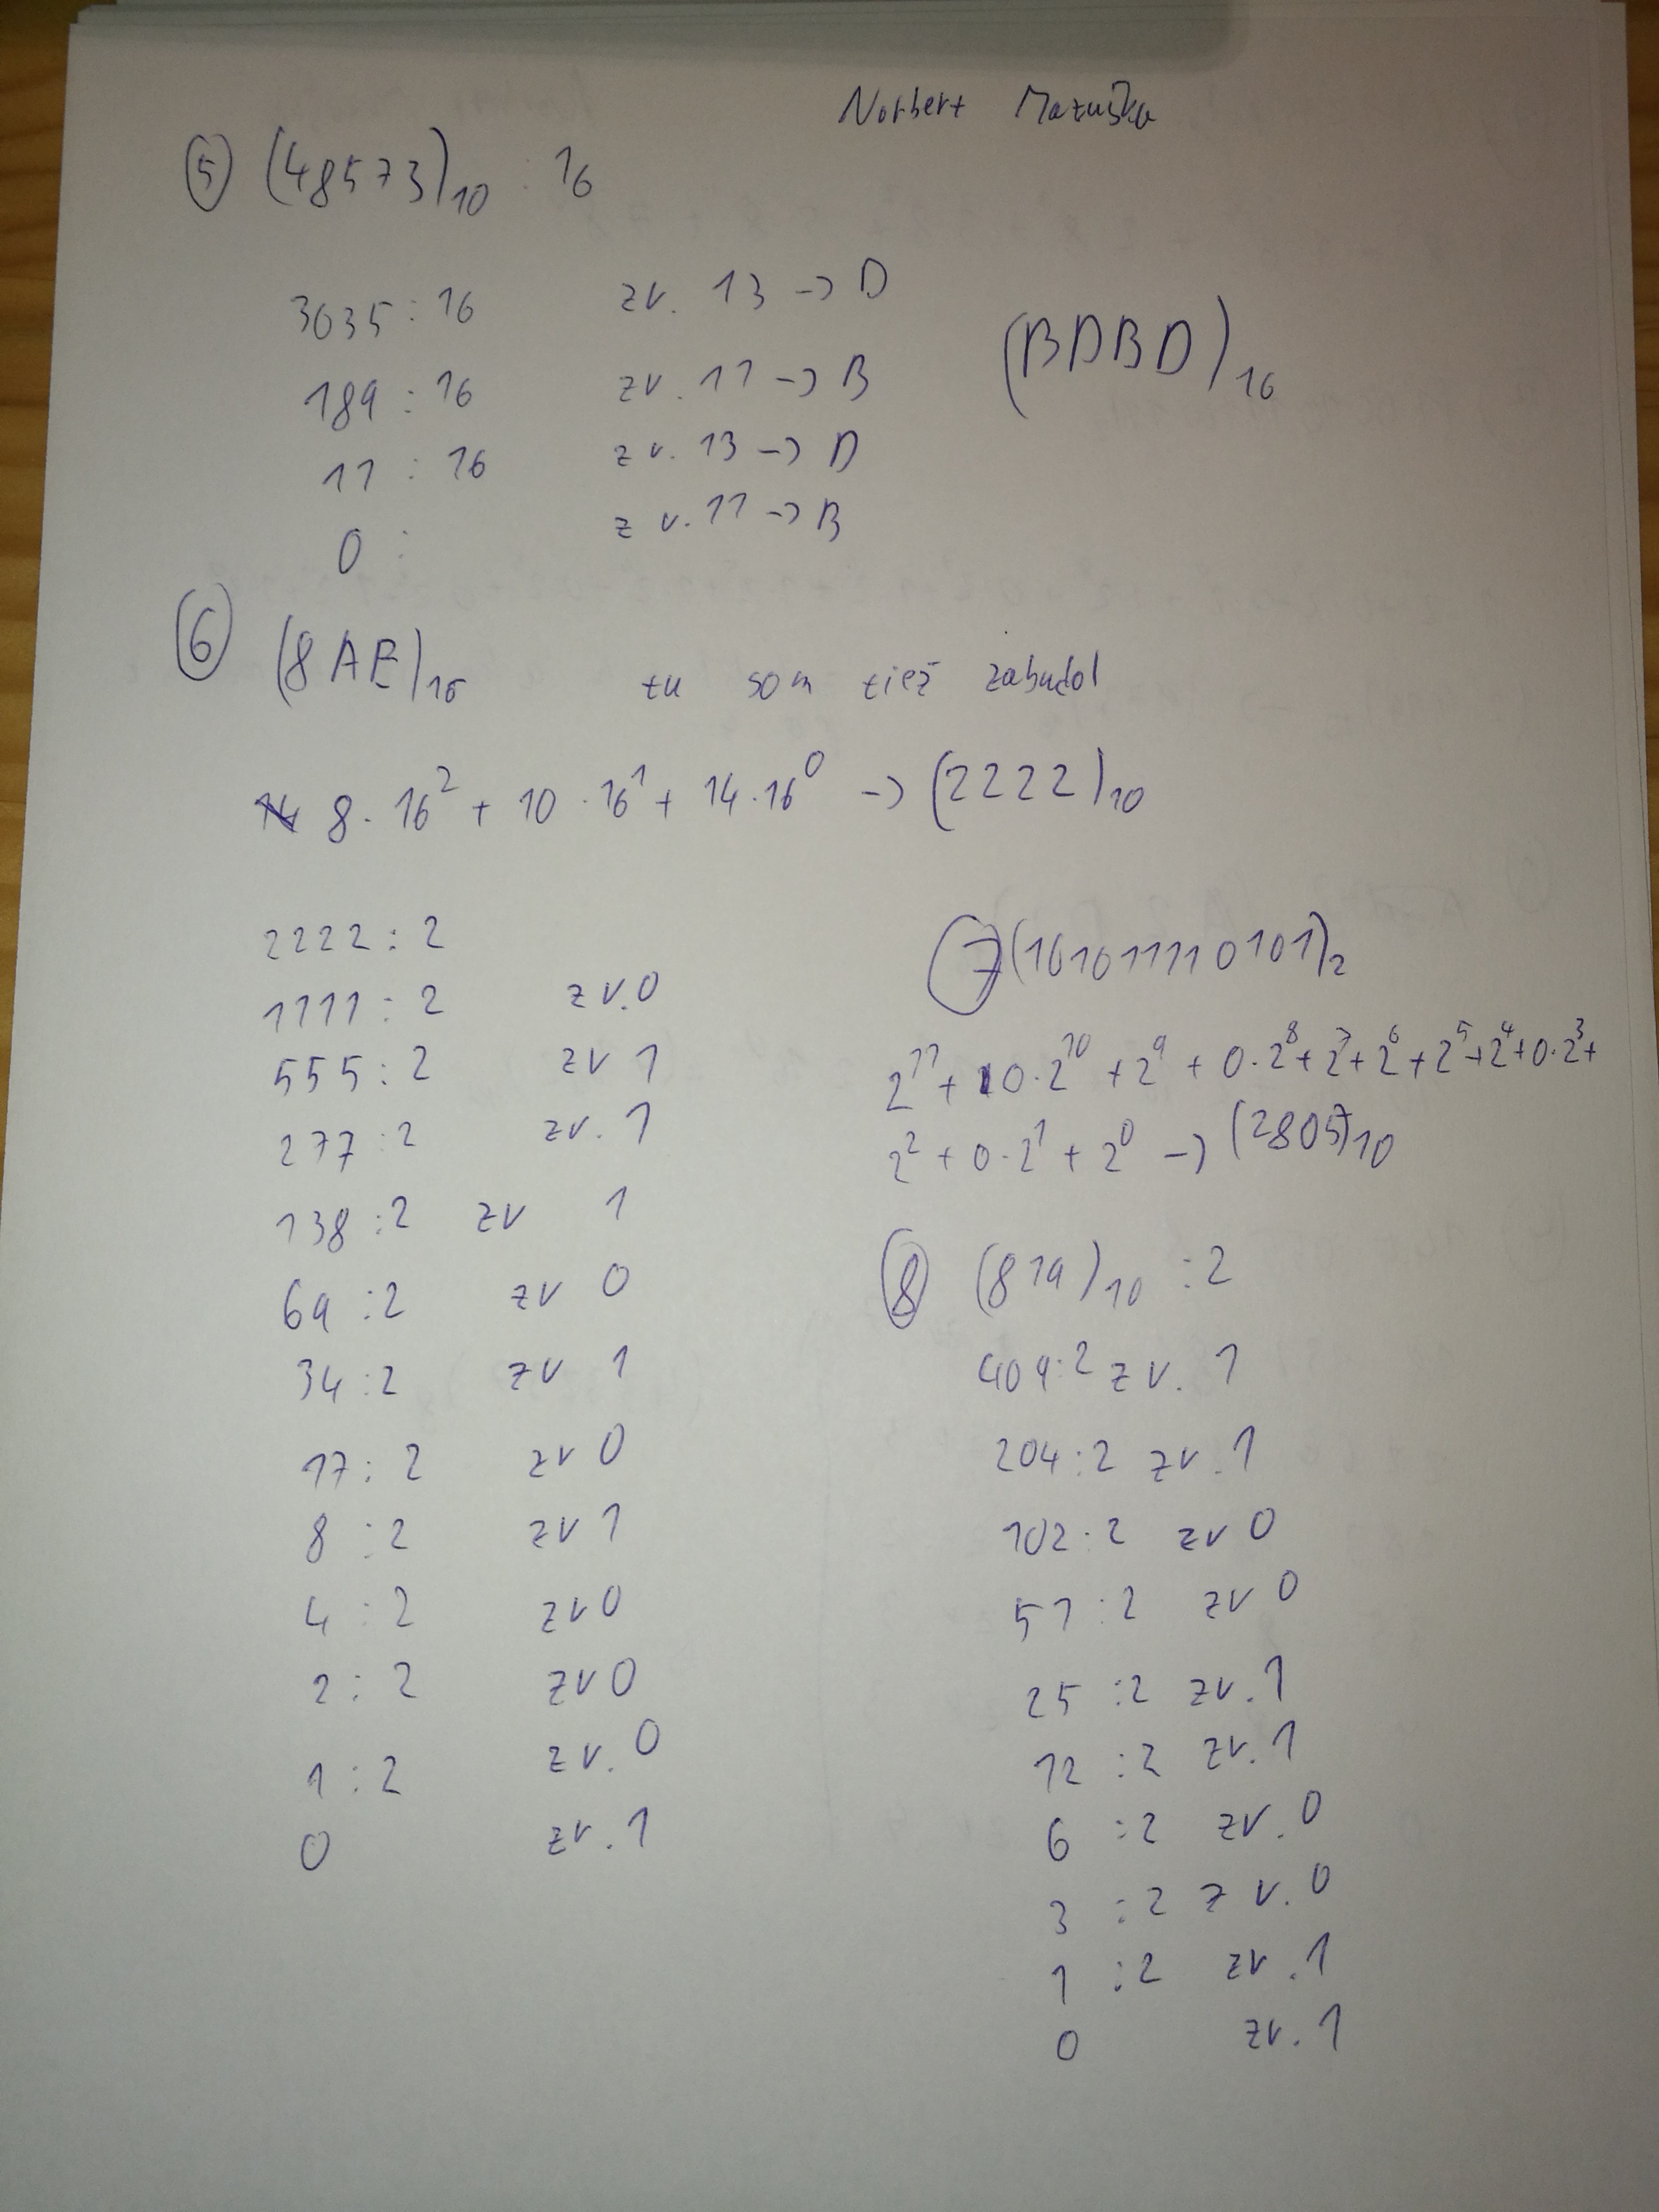 Norbert Mazuška
5 (48573)10 : 16
3035 : 16 zv. 13 -> D
189 : 16 zv. 11 -> B
11 : 16 zv. 13 -> D
0 : zv. 11 -> B
(BDBD)16
6 (8AE)16 tu som tiež zabudol
8·16^2 + 10·16^1 + 14·16^0 -> (2222)10
2222 : 2
1111 : 2 zv. 0
555 : 2 zv 1
277 : 2 zv. 1
138 : 2 zv 1
69 : 2 zv 0
34 : 2 zv 1
17 : 2 zv 0
8 : 2 zv 1
4 : 2 zv 0
2 : 2 zv 0
1 : 2 zv. 0
0 zv. 1
7 (101011110101)2
2^11 + 0·2^10 + 2^9 + 0·2^8 + 2^7 + 2^6 + 2^5 + 2^4 + 0·2^3 +
2^2 + 0·2^1 + 2^0 -> (2805)10
8 (819)10 : 2
409 : 2 zv. 1
204 : 2 zv. 1
102 : 2 zv 0
51 : 2 zv 0
25 : 2 zv. 1
12 : 2 zv. 1
6 : 2 zv. 0
3 : 2 zv. 0
1 : 2 zv. 1
0 zv. 1